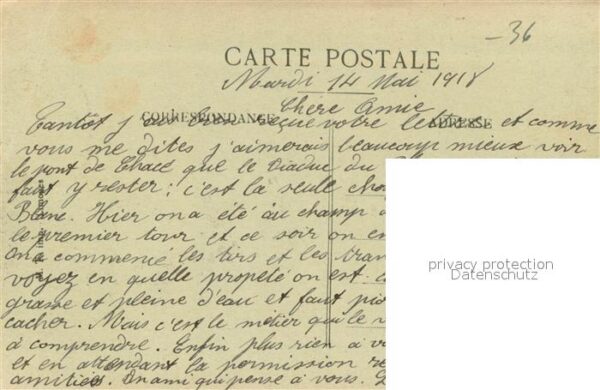 -36
CARTE POSTALE
Mardi 14 Mai 1918
Chère Amie
CORRESPONDANCE
ADRESSE
Tantôt j'ai bien reçue votre lettre et comme
vous me dites j'aimerais beaucoup mieux voir
le pont de que le Viaduc du
faut y rester; c'est la seule cho
Blanc. Hier on a été au champ
le premier tour et ce soir on en
on a commencé les tirs et les tran
voyez en quelle propeté on est. c
grasse et pleine d'eau et faut pio
cacher. Mais c'est le métier qui le v
à comprendre. Enfin plus rien à v
et en attendant la permission re
amitiés. Un ami qui pense à vous.
privacy protection
Datenschutz